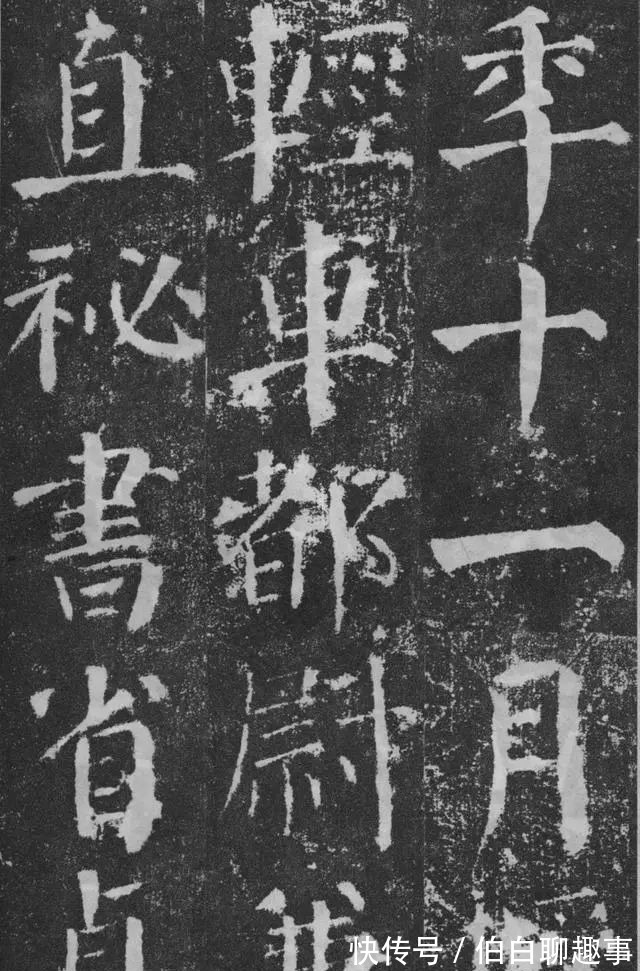 年十一月
輕車都尉兼
直祕書省貞
快传号 / 伯白聊趣事